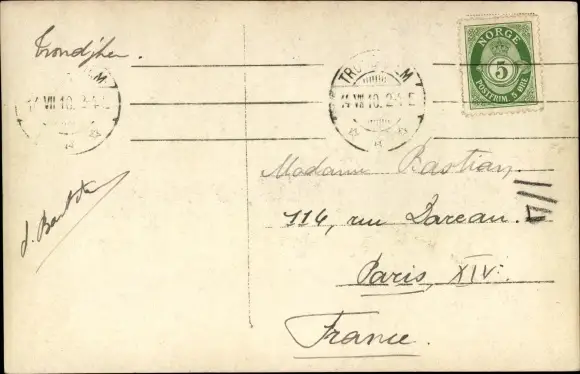 Trondhjem.
TRONDHJEM
14 VII 10. 2-5 E
TRONDHJEM
14 VII 10. 2-5 E
NORGE
5
POSTFRIM 5 ØRE
Madame Bastian
114, rue Dareau.
Paris, XIV.
France.